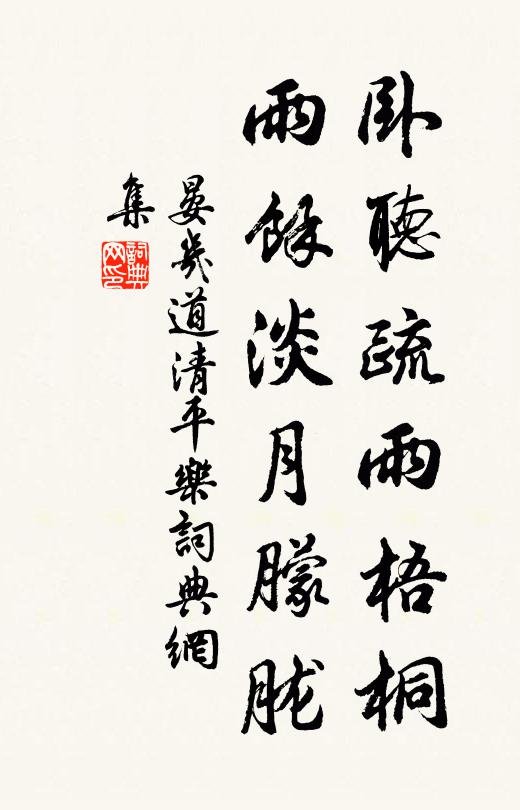 卧聽疏雨梧桐
雨餘淡月朦朧
晏幾道清平樂詞典網
集
詞典网印